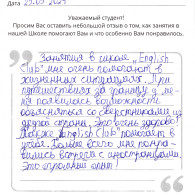 Дата 29.05.2024
Уважаемый студент!
Просим Вас оставить небольшой отзыв о том, как занятия в
нашей Школе помогают Вам и что особенно Вам понравилось.
Занятия в школе „English
Club" мне очень помогают в
жизненных ситуациях. При
путешествиях за границу у ме-
ня появилась возможность
объясняться со сверстниками из
других стран. Это очень здорово!
Также English Club помогает в
учёбе. Больше всего мне понра-
вились встречи с иностранцами.
Это огромный опыт